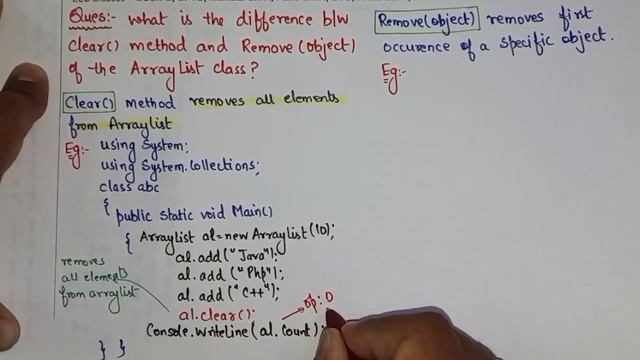 Ques:- what is the difference b/w
clear() method and Remove(object)
of the ArrayList class?
Clear() method removes all elements
from Arraylist
Eg:- using System;
using System.Collections;
class abc
{
public static void Main()
{ ArrayList al=new ArrayList(10);
al.add("Java");
al.add("Php");
al.add("C++");
al.clear();
Console.WriteLine(al.Count);
} }
removes
all elements
from arraylist
op: 0
Remove(object) removes first
occurence of a specific object.
Eg:-